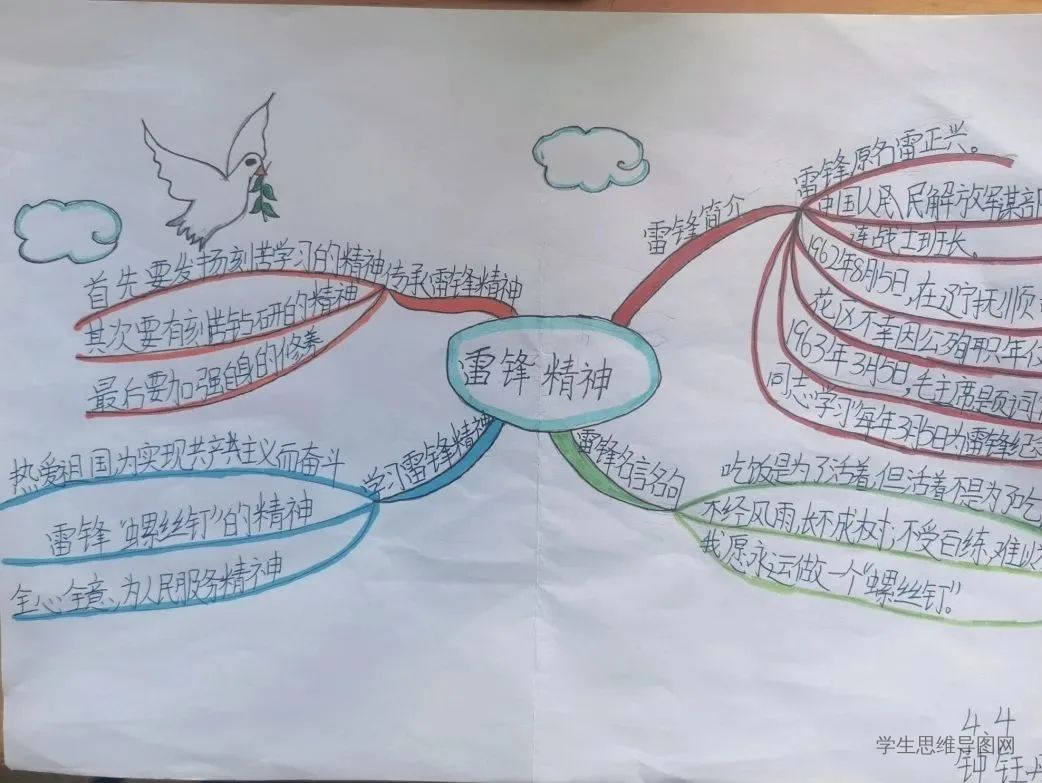 雷锋精神
雷锋简介
雷锋原名雷正兴。
中国人民解放军某部
连战士班长。
1962年8月15日,在辽宁抚顺
花区不幸因公殉职年仅
1963年3月5日,毛主席题词
同志学习"每年3月5日为雷锋纪念
雷锋名言名句
吃饭是为了活着,但活着不是为了吃
不经风雨,长不成树;不受百练,难以
我愿永远做一个"螺丝钉"。
传承雷锋精神
首先要发扬刻苦学习的精神
其次要有刻苦钻研的精神
最后要加强自身的修养
学习雷锋精神
热爱祖国为实现共产主义而奋斗
雷锋"螺丝钉"的精神
全心全意、为人民服务精神
4.4
学生思维导图网
钟钰